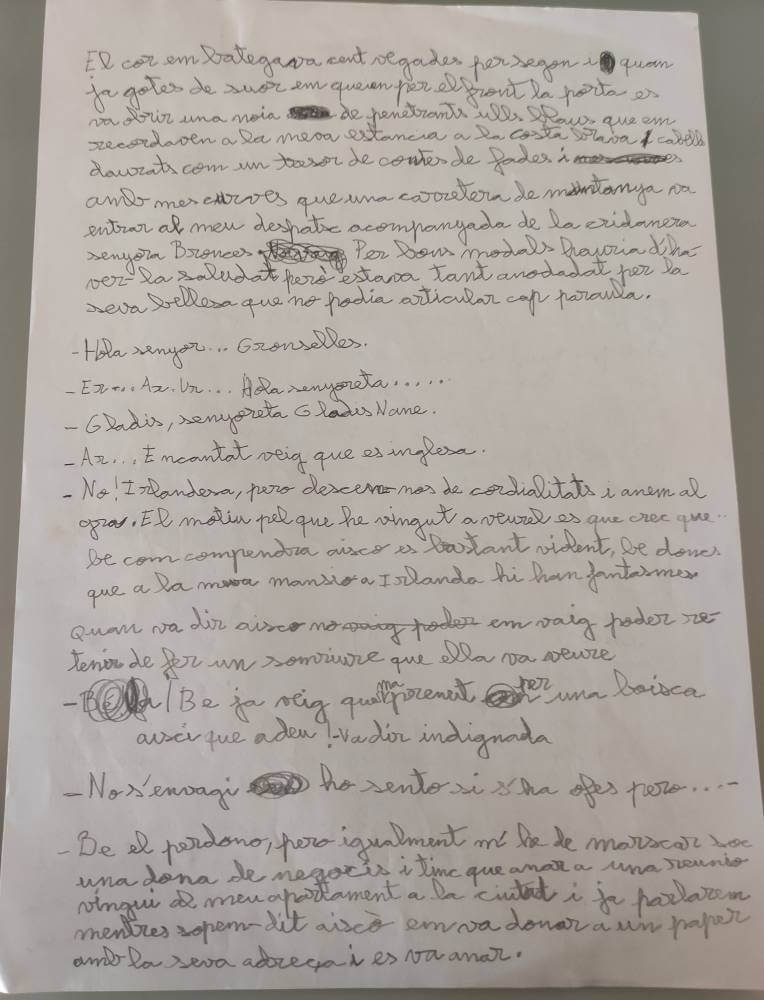 El cor em bategava cent vegades per segon i quan
ja gotes de suor em queien per el front la porta es
va obrir una noia de penetrants ulls blaus que em
recordaven a la meva estancia a la costa brava, cabells
daurats com un tresor de contes de fades i
amb mes curves que una carretera de muntanya va
entrar al meu despatx acompanyada de la cridanera
senyora Bronces. Per bons modals hauria d'ha-
ver-la saludat però estava tant anodadat per la
seva bellesa que no podia articular cap paraula.
- Hola senyor... Gronselles.
- Er... Ar. Ur... Hola senyoreta.....
- Gladis, senyoreta Gladis Nane.
- Ar... Encantat veig que es inglesa.
- No! Irlandesa, pero descem-nos de cordialitats i anem al
gra. El motiu pel que he vingut a veurel es que crec que..
be com compendra aisco es bastant violent, be doncs
que a la meva mansio a Irlanda hi han fantasmes
Quan va dir aisco no vaig poder em vaig poder re-
tenir de fer un somriure que ella va veure
- Be ja veig que ma prenent per una boisca
aisci que adeu! -va dir indignada
- No s'envagi ho sento si s'ha ofes pero....-
- Be el perdono, pero igualment m'he de marscar soc
una dona de negocis i tinc que anar a una reunio
vingui al meu apartament a la ciutat i ja parlarem
mentres sopem- dit aiscò em va donar a un paper
amb la seva adreça i es va anar.